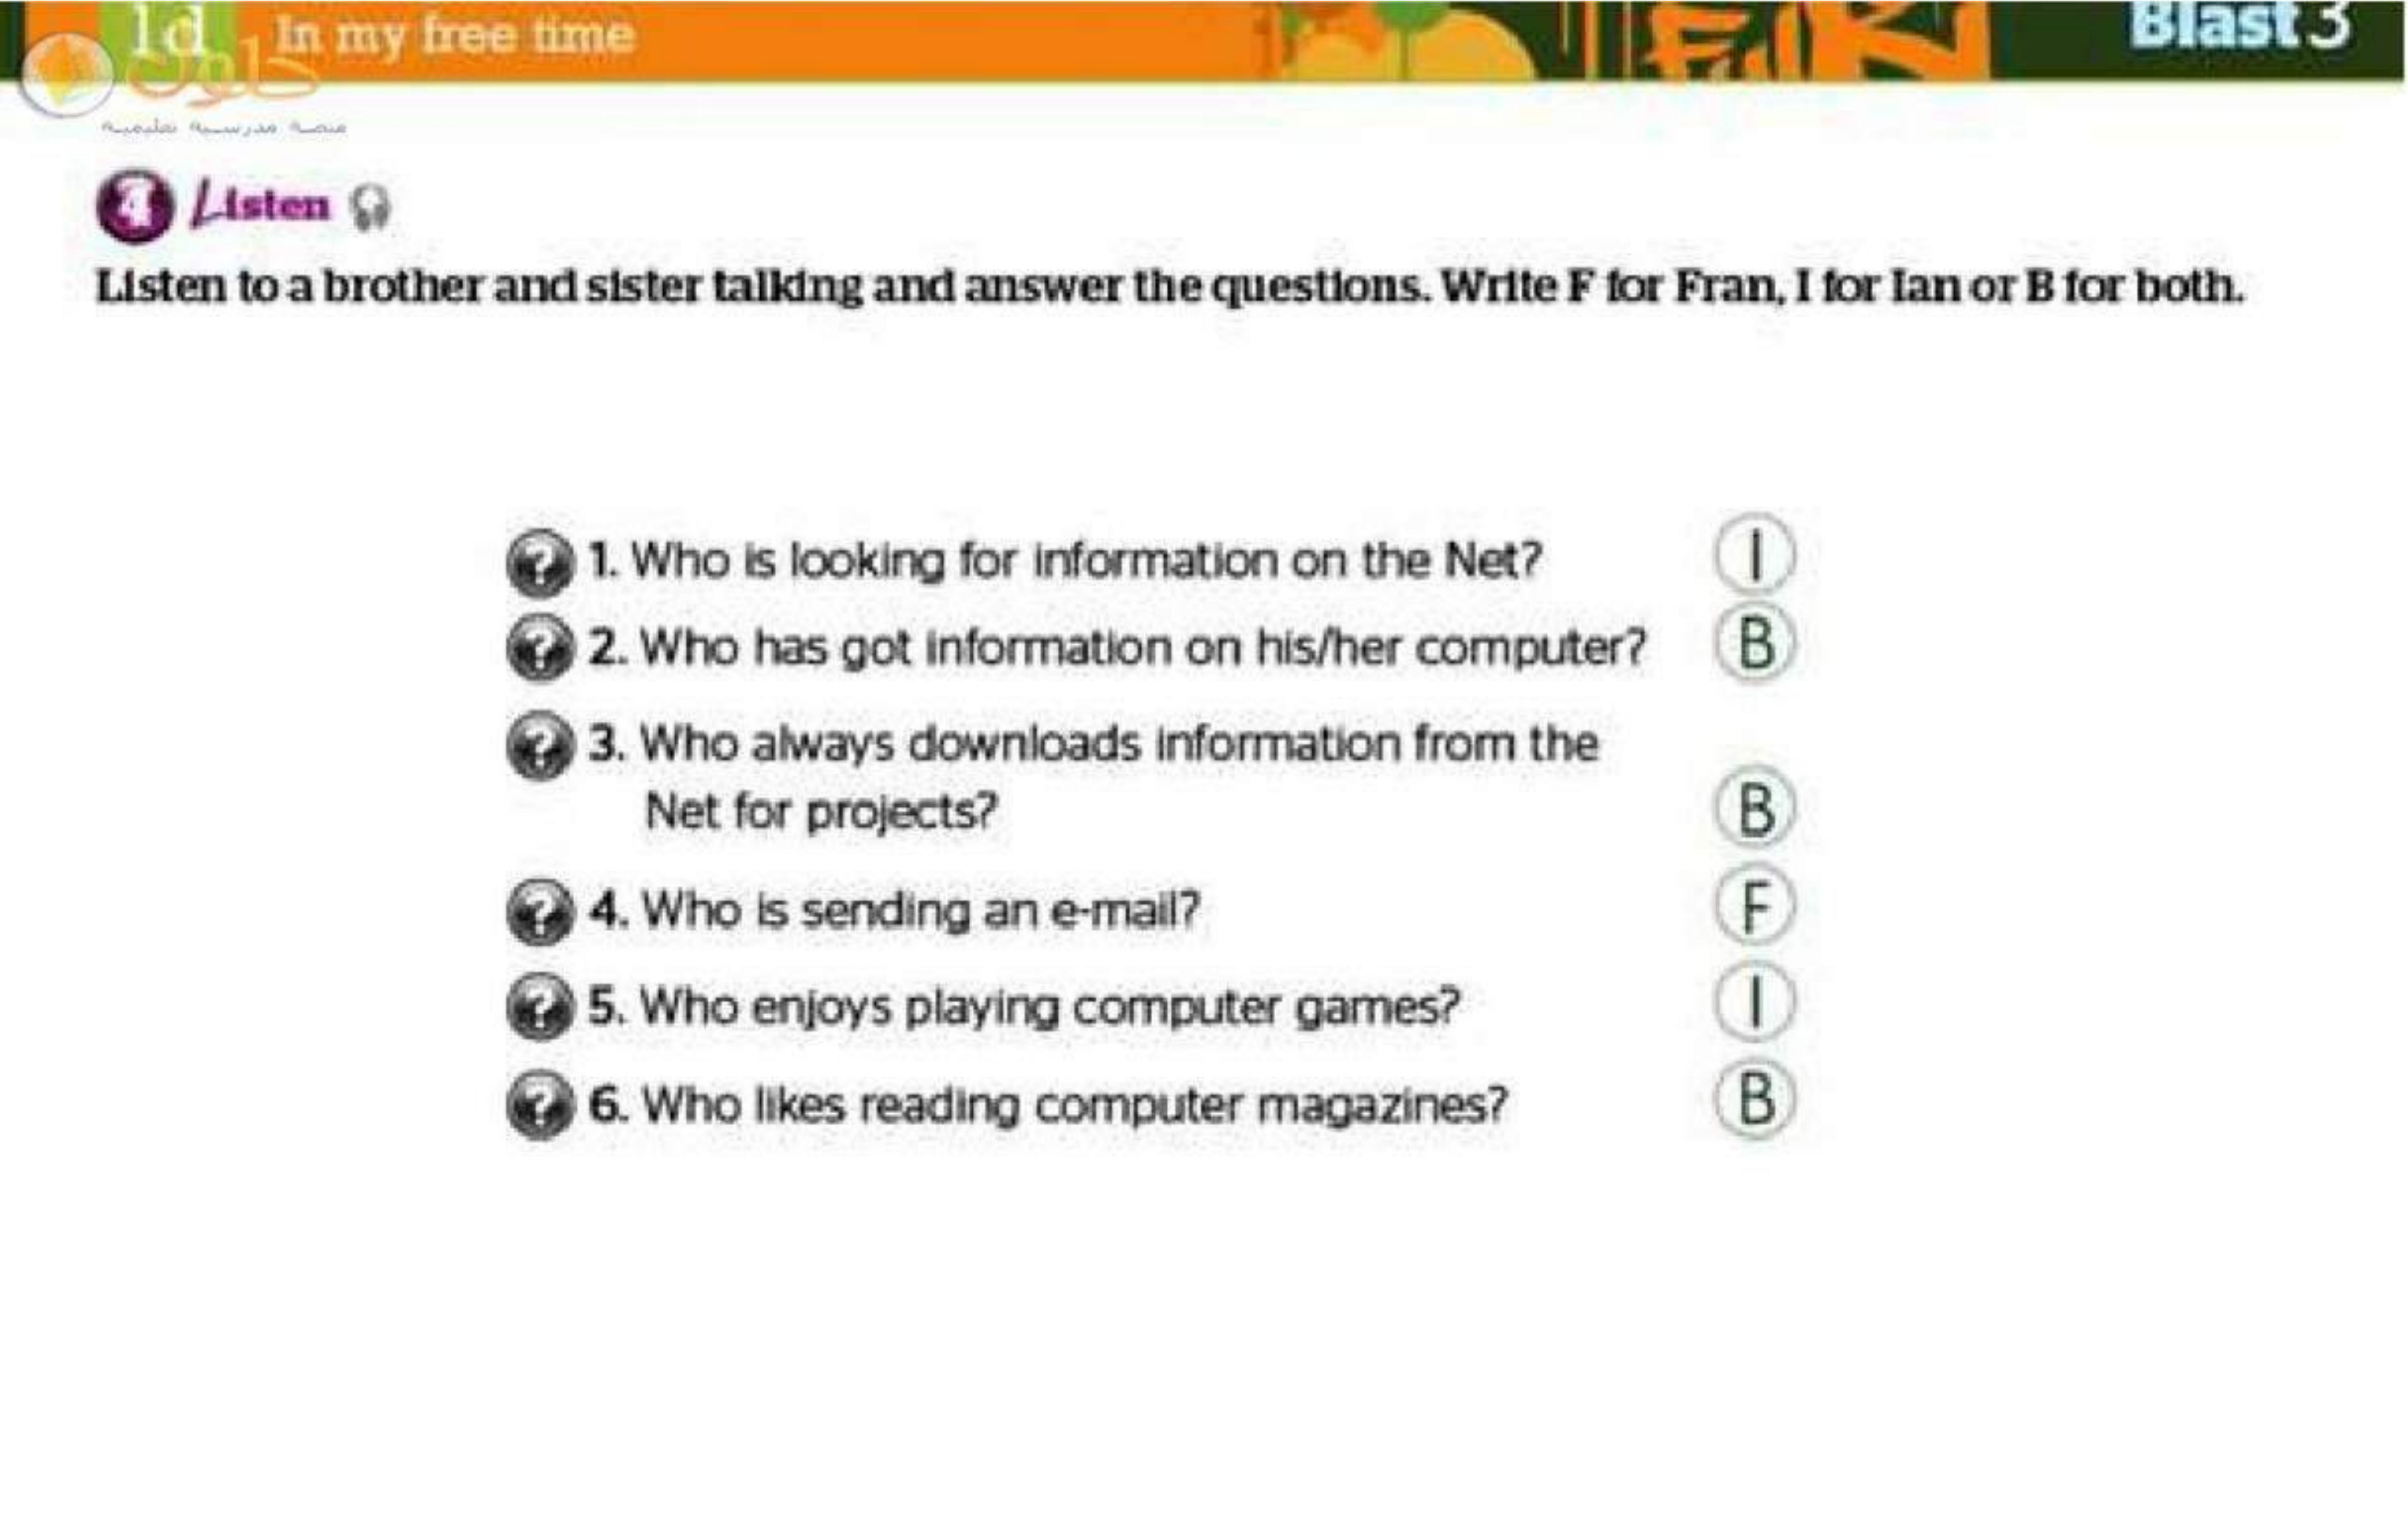 1d In my free time
Blast 3
حلول
منصة مدرسية تعليمية
4 Listen
Listen to a brother and sister talking and answer the questions. Write F for Fran, I for Ian or B for both.
? 1. Who is looking for information on the Net? I
? 2. Who has got information on his/her computer? B
? 3. Who always downloads information from the
Net for projects? B
? 4. Who is sending an e-mail? F
? 5. Who enjoys playing computer games? I
? 6. Who likes reading computer magazines? B